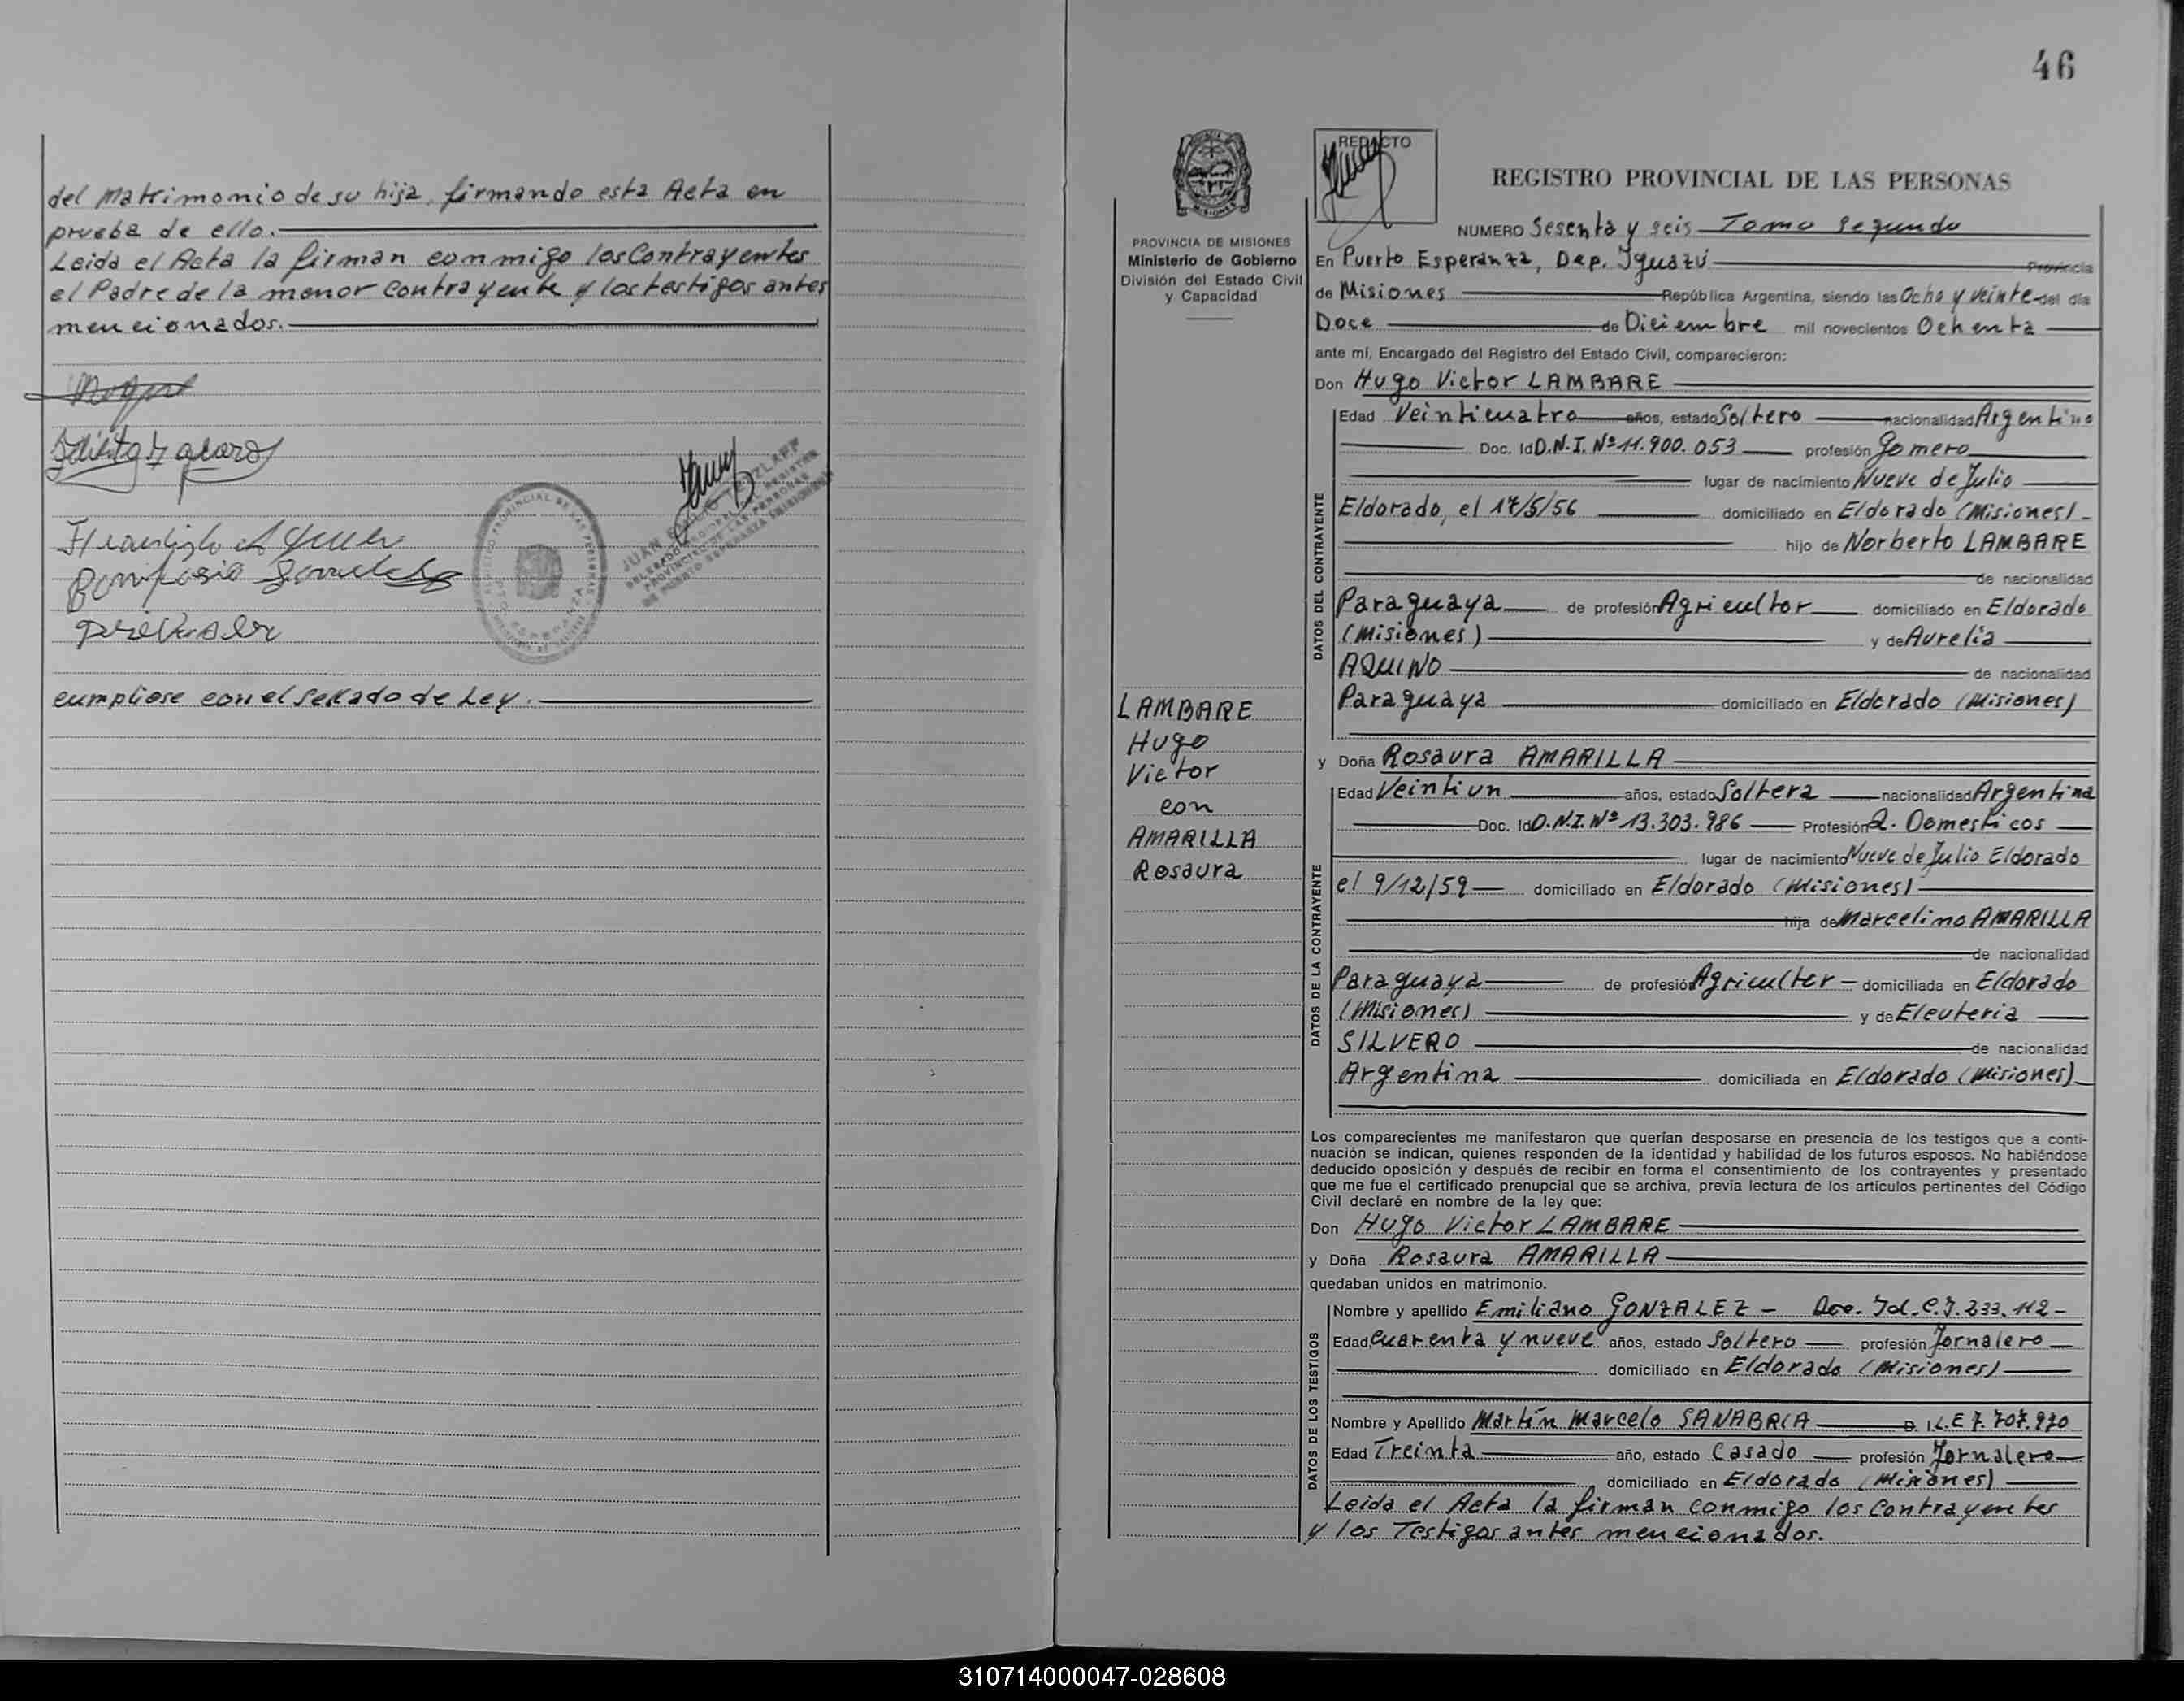 del Matrimonio de su hija, firmando esta Acta en
prueba de ello.
Leida el Acta la firman conmigo los Contrayentes
el Padre de la menor contrayente y los testigos antes
mencionados.
cumpliose con el sellado de Ley.
46
REDACTO
REGISTRO PROVINCIAL DE LAS PERSONAS
NUMERO Sesenta y seis Tomo Segundo
PROVINCIA DE MISIONES
Ministerio de Gobierno
División del Estado Civil
y Capacidad
En Puerto Esperanza, Dep. Iguazú Provincia
de Misiones República Argentina, siendo las Ocho y veinte del día
Doce de Diciembre mil novecientos Ochenta
ante mí, Encargado del Registro del Estado Civil, comparecieron:
Don Hugo Victor LAMBARE
LAMBARE
Hugo
Victor
con
AMARILLA
Rosaura
DATOS DEL CONTRAYENTE
Edad Veinticuatro años, estado Soltero nacionalidad Argentino
Doc. Id D.N.I. Nº 11.900.053 profesión Gomero
lugar de nacimiento Nueve de Julio
Eldorado, el 17/5/56 domiciliado en Eldorado (Misiones)
hijo de Norberto LAMBARE
de nacionalidad
Paraguaya de profesión Agricultor domiciliado en Eldorado
(Misiones) y de Aurelia
AQUINO de nacionalidad
Paraguaya domiciliado en Eldorado (Misiones)
y Doña Rosaura AMARILLA
DATOS DE LA CONTRAYENTE
Edad Veintiun años, estado Soltera nacionalidad Argentina
Doc. Id D.N.I. Nº 13.303.986 Profesión Q. Domesticos
lugar de nacimiento Nueve de Julio Eldorado
el 9/12/59 domiciliado en Eldorado (Misiones)
hija de Marcelino AMARILLA
de nacionalidad
Paraguaya de profesión Agricultor domiciliada en Eldorado
(Misiones) y de Eleuteria
SILVERO de nacionalidad
Argentina domiciliada en Eldorado (Misiones)
Los comparecientes me manifestaron que querían desposarse en presencia de los testigos que a conti-
nuación se indican, quienes responden de la identidad y habilidad de los futuros esposos. No habiéndose
deducido oposición y después de recibir en forma el consentimiento de los contrayentes y presentado
que me fue el certificado prenupcial que se archiva, previa lectura de los artículos pertinentes del Código
Civil declaré en nombre de la ley que:
Don Hugo Victor LAMBARE
y Doña Rosaura AMARILLA
quedaban unidos en matrimonio.
DATOS DE LOS TESTIGOS
Nombre y apellido Emiliano GONZALEZ - Doc. Id. C.I. 233.112-
Edad Cuarenta y nueve años, estado Soltero profesión Jornalero
domiciliado en Eldorado (Misiones)
Nombre y Apellido Martín Marcelo SANABRIA D. I L.E 7.707.970
Edad Treinta año, estado Casado profesión Jornalero
domiciliado en Eldorado (Misiones)
Leida el Acta la firman conmigo los Contrayentes
y los Testigos antes mencionados.
310714000047-028608